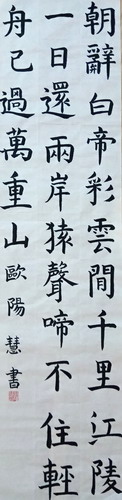 朝辭白帝彩雲間千里江陵
一日還兩岸猿聲啼不住輕
舟已過萬重山歐陽慧書